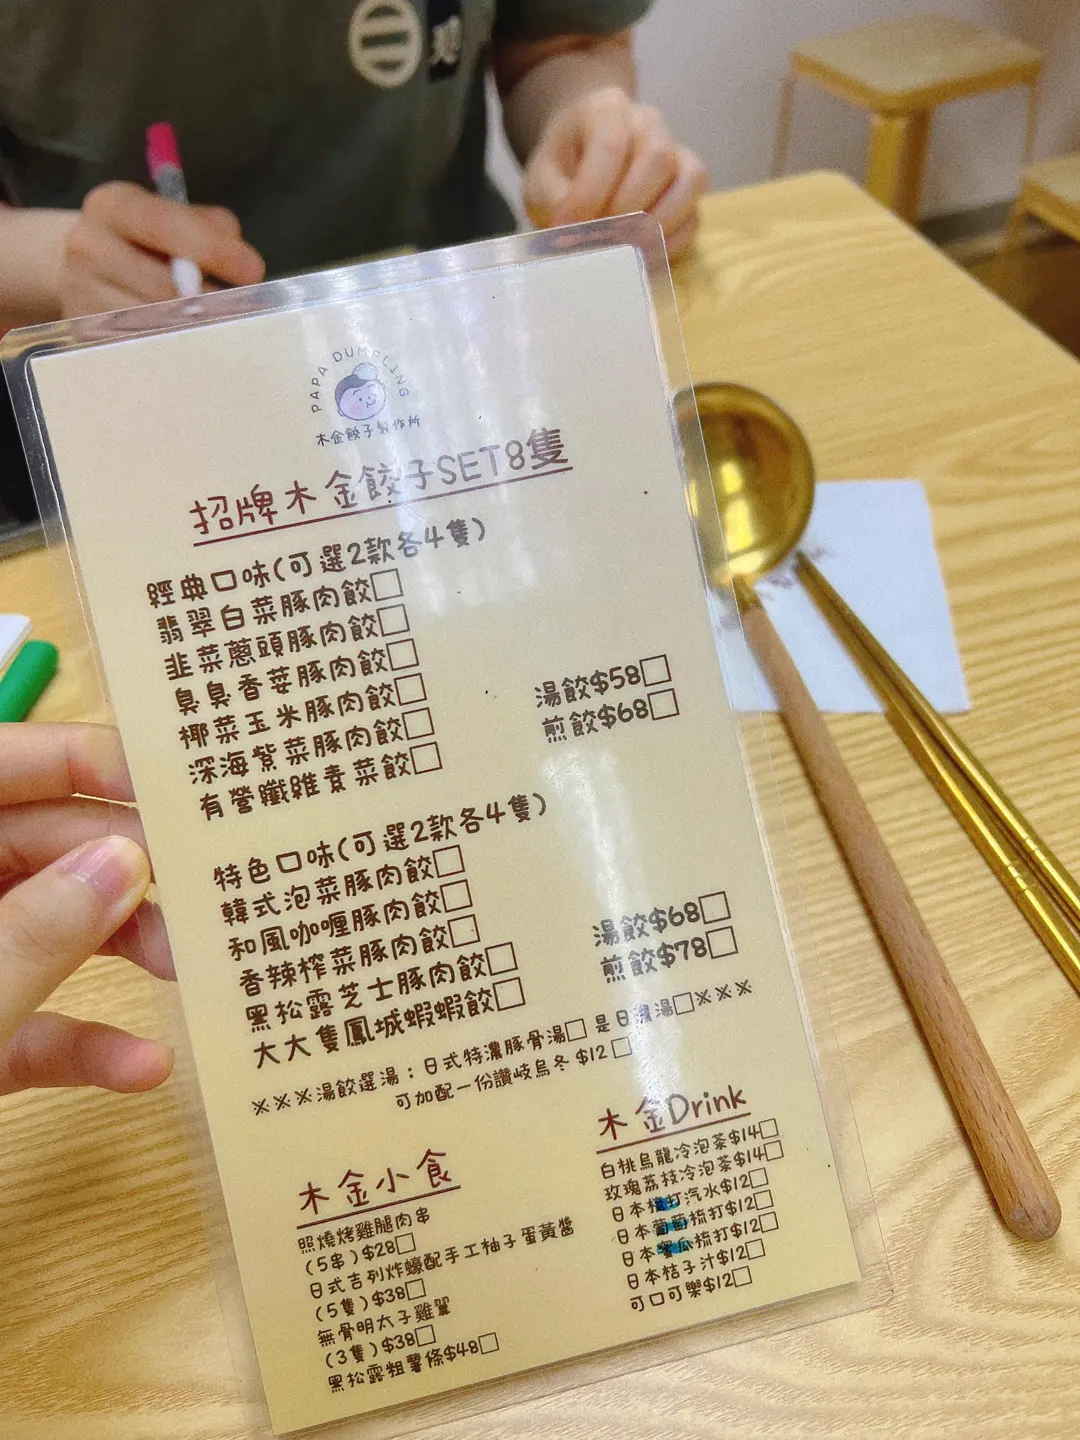 PAPA DUMPLING
木金餃子製作所
招牌木金餃子SET8隻
經典口味(可選2款各4隻)
翡翠白菜豚肉餃□
韭菜蔥頭豚肉餃□
臭臭香荽豚肉餃□
椰菜玉米豚肉餃□
深海紫菜豚肉餃□
有營纖維素菜餃□
湯餃$58□
煎餃$68□
特色口味(可選2款各4隻)
韓式泡菜豚肉餃□
和風咖喱豚肉餃□
香辣榨菜豚肉餃□
黑松露芝士豚肉餃□
大大隻鳳城蝦蝦餃□
湯餃$68□
煎餃$78□
※※※湯餃選湯：日式特濃豚骨湯□ 是日湯□※※※
可加配一份讚岐烏冬 $12 □
木金小食
照燒烤雞腿肉串
(5串)$28□
日式吉列炸蠔配手工柚子蛋黃醬
(5隻)$38□
無骨明太子雞翼
(3隻)$38□
黑松露粗薯條$48□
木金Drink
白桃烏龍冷泡茶$14□
玫瑰荔枝冷泡茶$14□
日本打汽水$12□
日本葡萄梳打$12□
日本蜜瓜梳打$12□
日本桔子汁$12□
可口可樂$12□